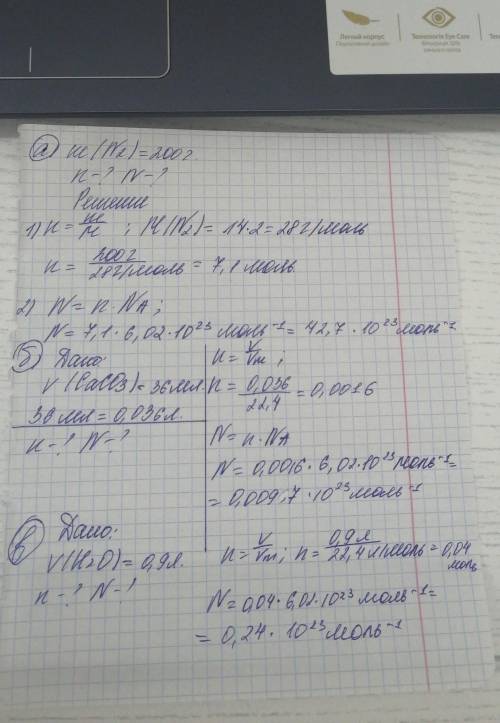 Легкий корпус
Технологія Eye Care
а) m(N2) = 200г
n-? N-?
Решение
1) n = m/M ; M(N2) = 14·2 = 28г/моль
n = 200г/28г/моль = 7,1 моль
2) N = n·NA;
N = 7,1·6,02·10²³ моль⁻¹ = 42,7·10²³ моль⁻¹
б) Дано:
V(CaCO3) = 36мл
36 мл = 0,036л.
n-? N-?
n = V/Vm ;
n = 0,036/22,4 = 0,0016
N = n·NA
N = 0,0016·6,02·10²³ моль⁻¹ =
= 0,009,7·10²³ моль⁻¹
в) Дано:
V(H2O) = 0,9л.
n-? N-?
n = V/Vm; n = 0,9л/22,4 л/моль = 0,04 моль
N = 0,04·6,02·10²³ моль⁻¹ =
= 0,24·10²³ моль⁻¹